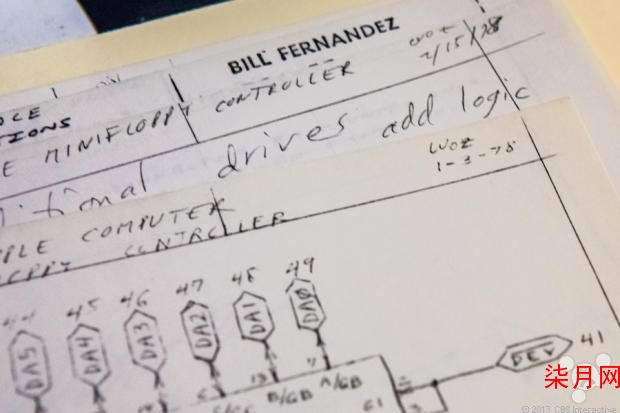 BILL FERNANDEZ
WOZ
2/15/78
E MINIFLOPPY CONTROLLER
drives add logic
WOZ
1-3-78
PLE COMPUTER
CONTROLLER
44 45 46 47 48 49
DA5 DA4 DA3 DA2 DA1 DA0
DEV 41
B/GB A/GB
G1
柒月网
© 2013 CBS Interactive